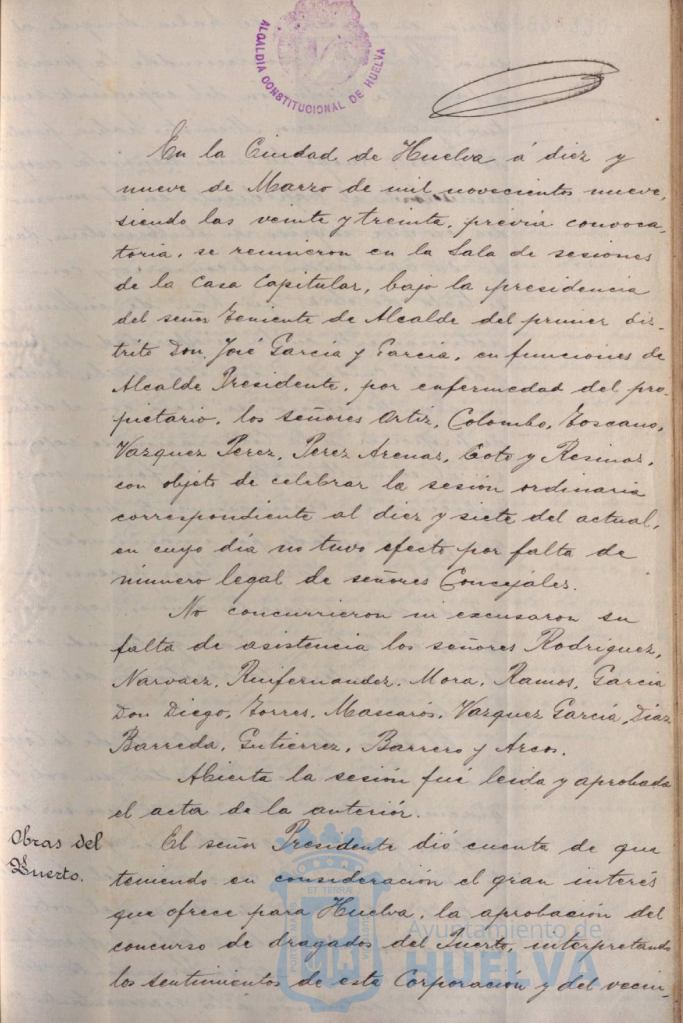 ALCALDIA CONSTITUCIONAL DE HUELVA
En la Ciudad de Huelva á diez y
nueve de Marzo de mil novecientos nueve,
siendo las veinte y treinta, previa convoca-
toria, se reunieron en la Sala de sesiones
de la Casa Capitular, bajo la presidencia
del señor Teniente de Alcalde del primer dis-
trito Don José García y García, en funciones de
Alcalde Presidente, por enfermedad del pro-
pietario, los señores Ortiz, Colombo, Toscano,
Vazquez Perez, Perez Arenas, Coto y Resinas,
con objeto de celebrar la sesión ordinaria
correspondiente al diez y siete del actual,
en cuyo día no tuvo efecto por falta de
número legal de señores Concejales.
No concurrieron ni excusaron su
falta de asistencia los señores Rodriguez,
Narvaez, Ruifernandez, Mora, Ramos, Garcia
Don Diego, Torres, Mascarós, Vazquez García, Diaz
Barreda, Gutierrez, Barrero y Arcos.
Abierta la sesión fué leida y aprobada
el acta de la anteriór.
Obras del
Puerto.
El señor Presidente dió cuenta de que
teniendo en consideración el gran interés
que ofrece para Huelva, la aprobación del
concurso de dragados del Puerto, interpretando
los sentimientos de esta Corporación y del vecin-
Ayuntamiento de
HUELVA